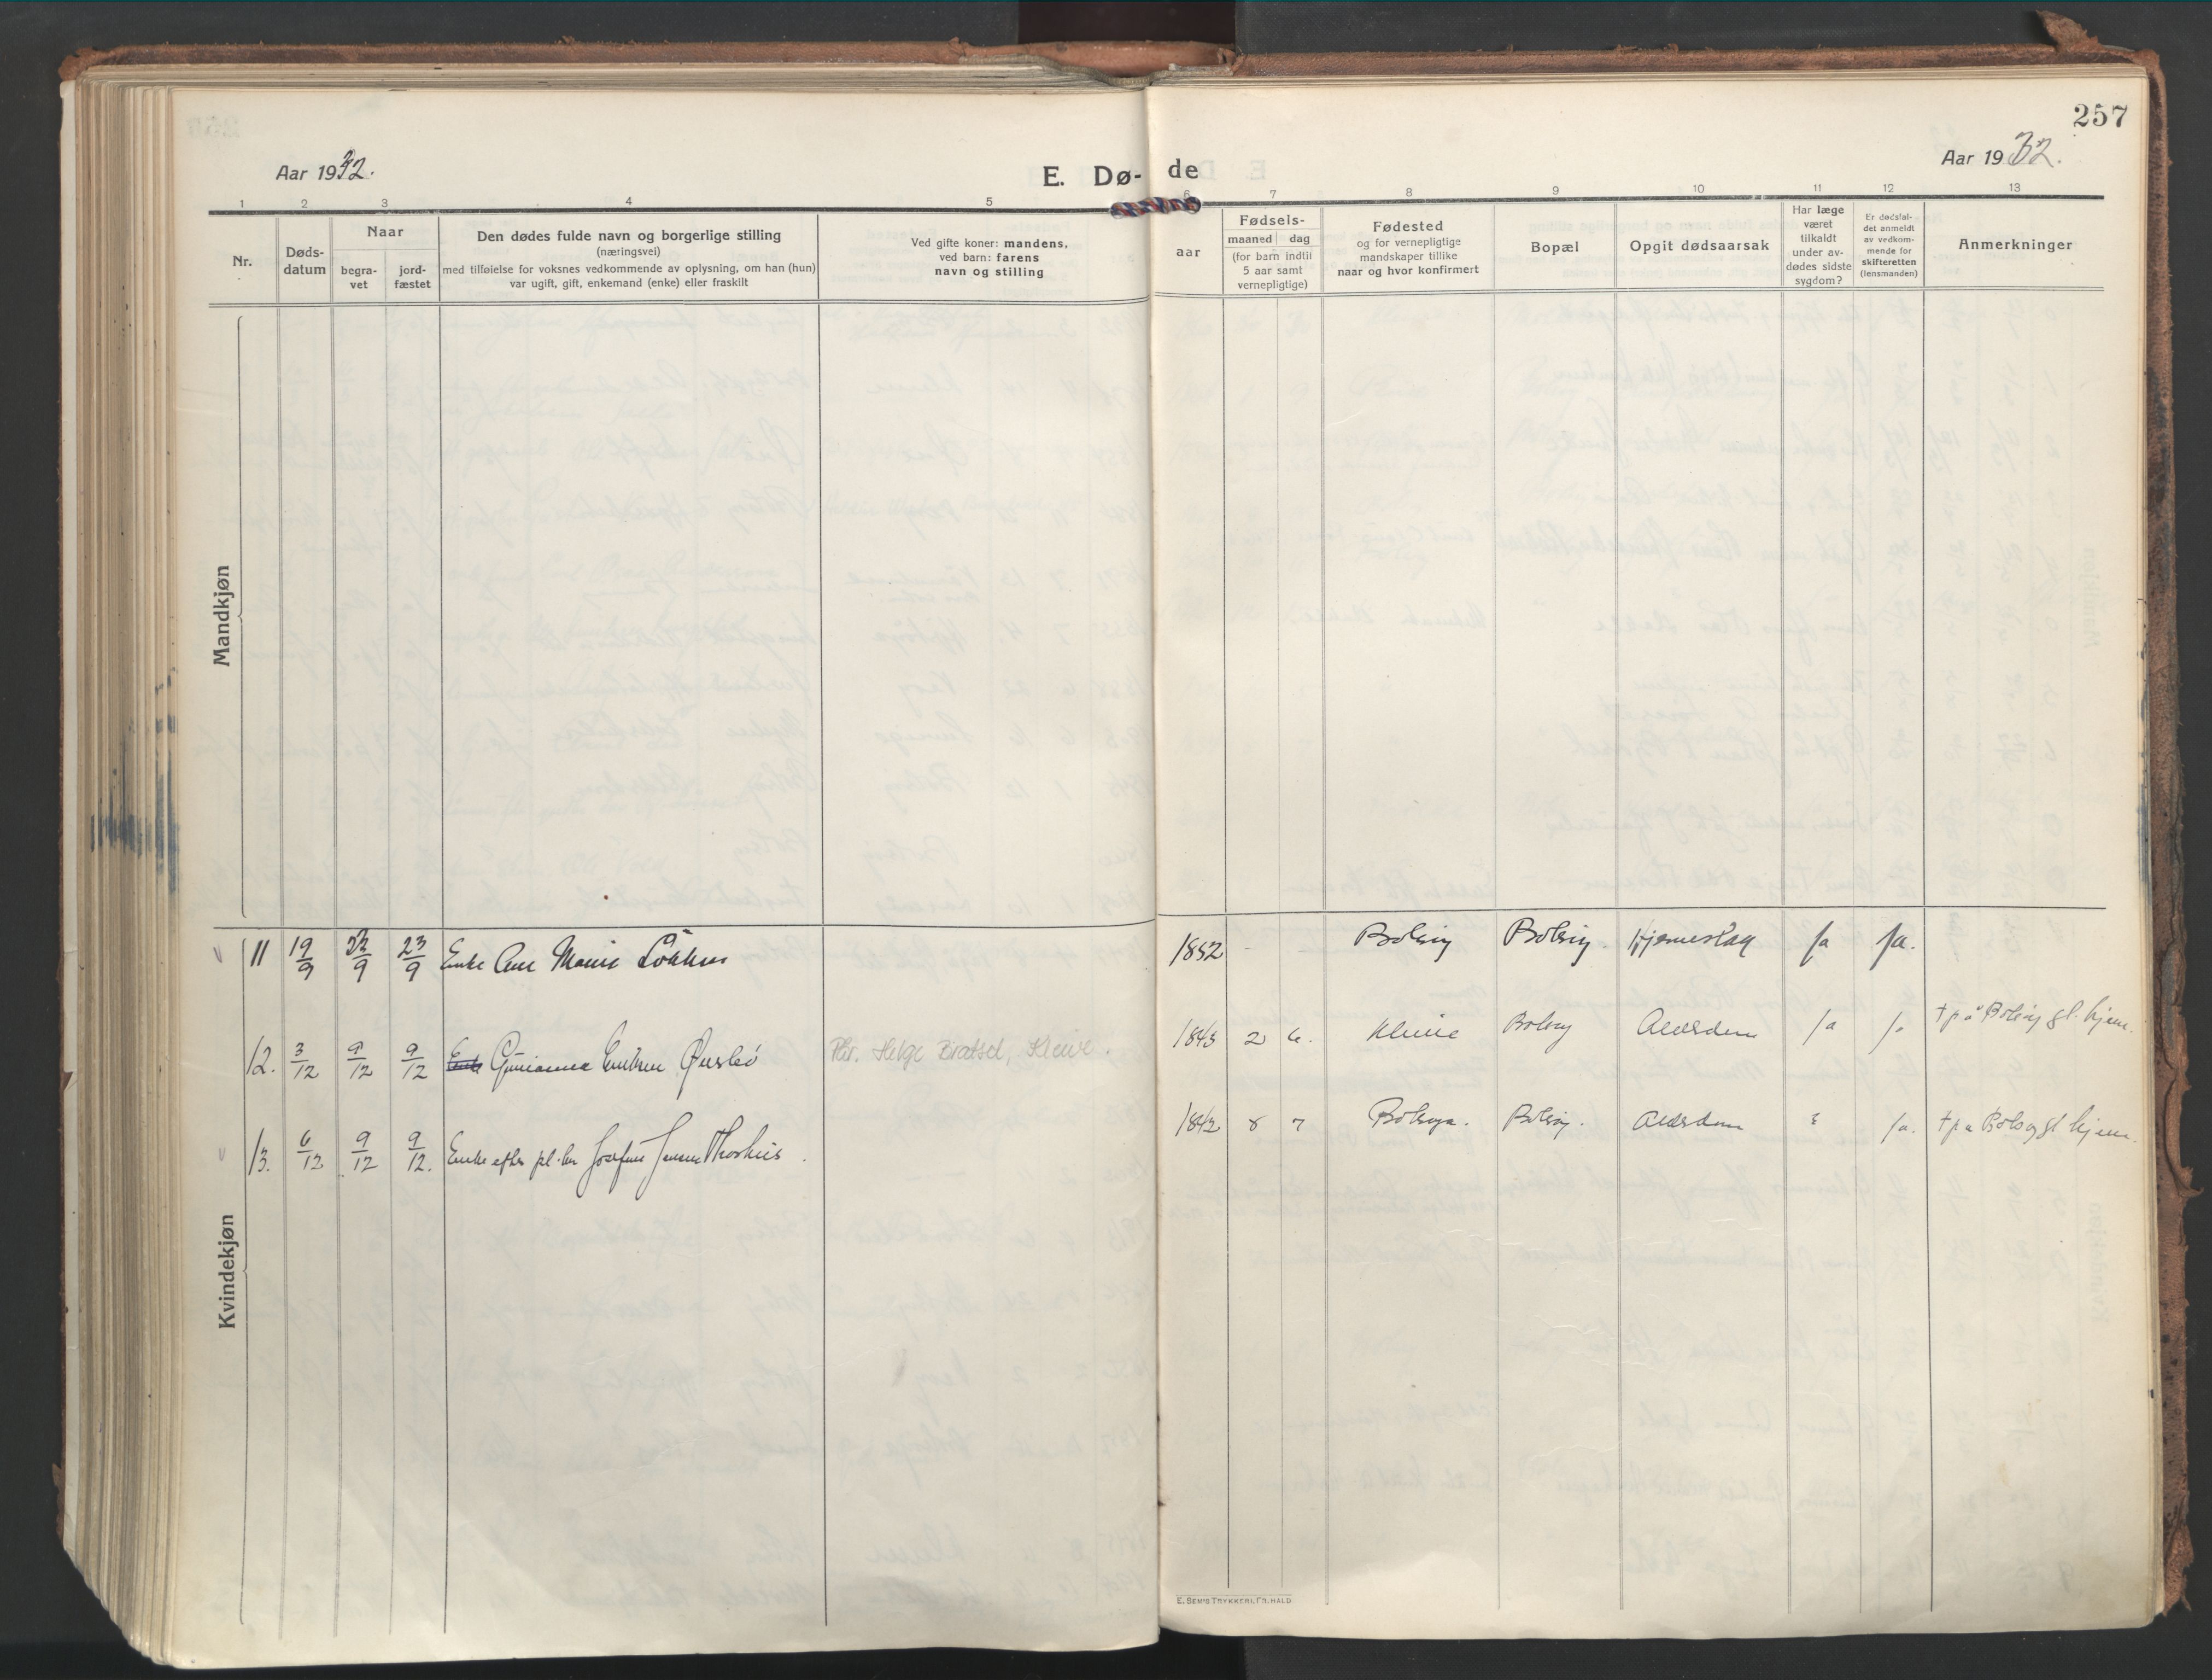 257
Aar 1932.
E. Dø-
de
Aar 1932.
1 2 3 4 5 6 7 8 9 10 11 12 13
Nr.
Døds-
datum
Naar
begra-
vet
jord-
fæstet
Den dødes fulde navn og borgerlige stilling
(næringsvei)
med tilføielse for voksnes vedkommende av oplysning, om han (hun)
var ugift, gift, enkemand (enke) eller fraskilt
Ved gifte koner: mandens,
ved barn: farens
navn og stilling
aar
Fødsels-
maaned dag
(for barn indtil
5 aar samt
vernepligtige)
Fødested
og for vernepligtige
mandskaper tillike
naar og hvor konfirmert
Bopæl
Opgit dødsaarsak
Har læge
været
tilkaldt
under av-
dødes sidste
sygdom?
Er dødsfal-
det anmeldt
av vedkom-
mende for
skifteretten
(lensmanden)
Anmerkninger
Mandkjøn
Kvindekjøn
11 19/9 23/9 23/9 Enke Ane Marie Løkken 1852 - - Bolsøy Bolsøy. Hjerneslag ja ja.
12. 3/12 9/12 9/12 Enke Gurianna Øverbø Helge Bratset, Kleive. 1843 2 6. Kleive Bolsøy Alderdom ja ja + på Bolsøy gl. hjem.
13. 6/12 9/12 9/12. Enke efter Josefine Jensen 1842 8 7 Bolsøya. Bolsøy. Alderdom ja. + på Bolsøy gl hjem.
E. SEM'S TRYKKERI, FR.HALD